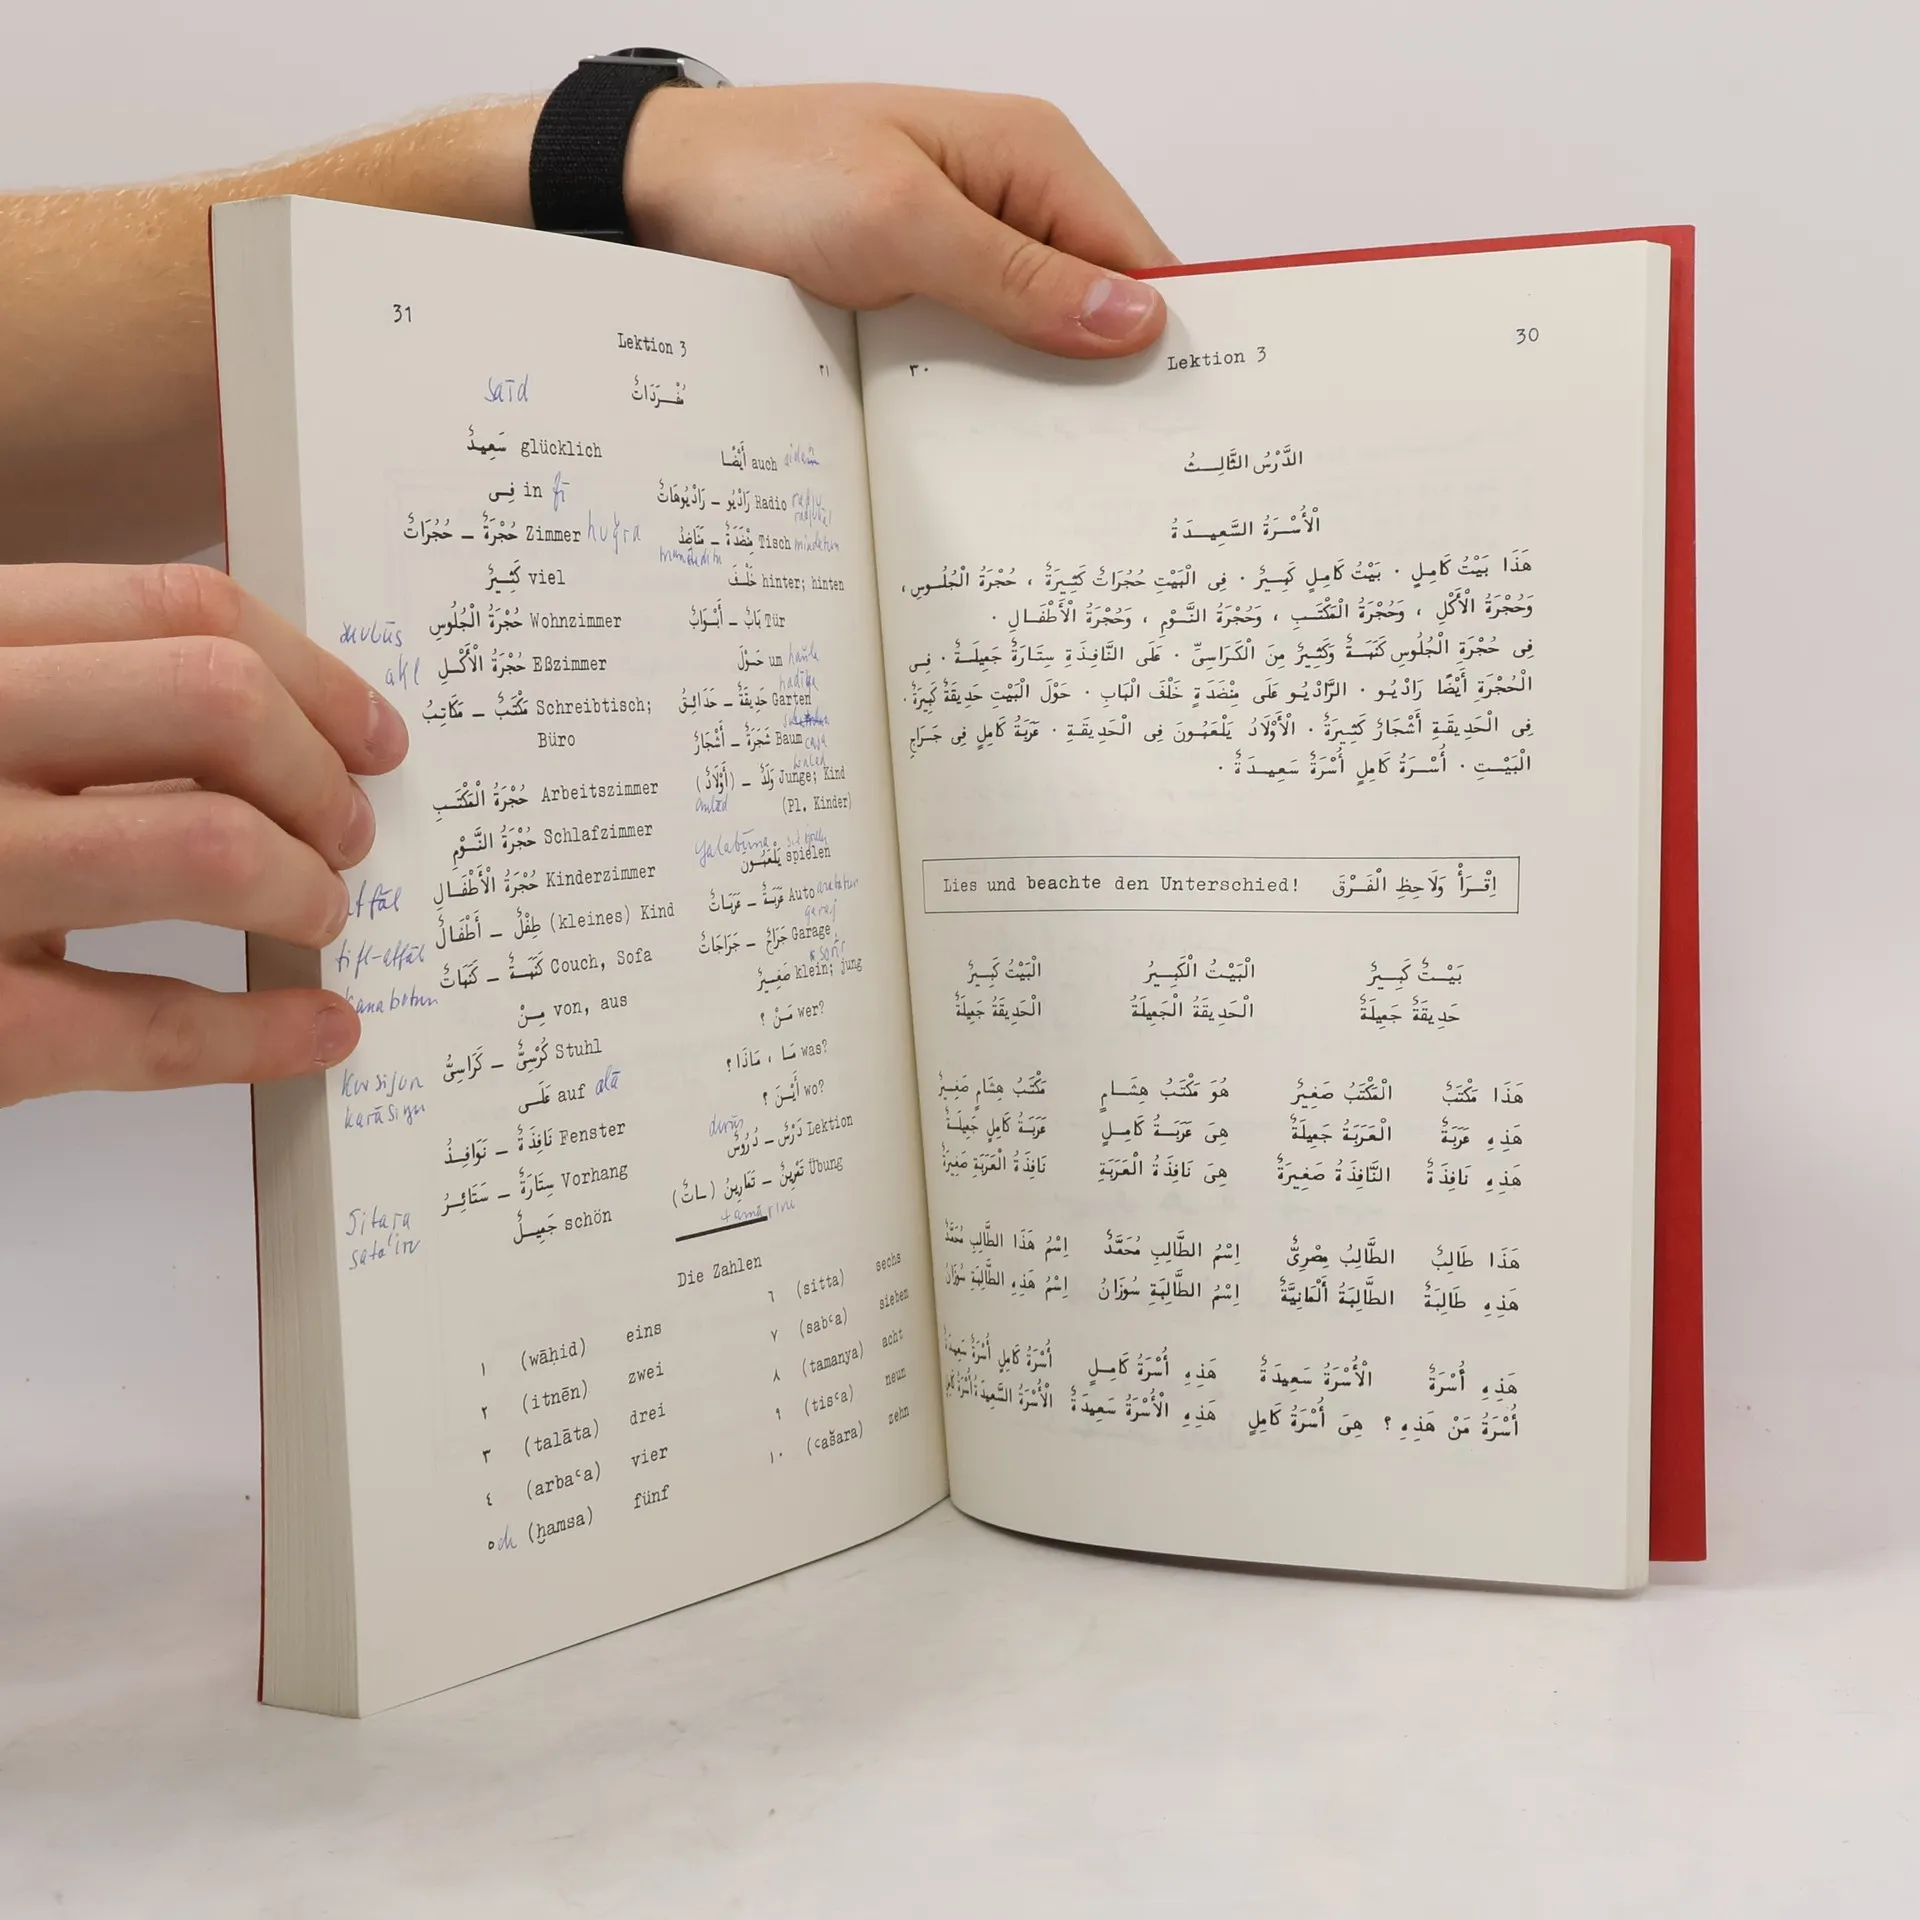 ٣٠ Lektion 3 30
الدَّرْسُ الثَّالِثُ
الْأُسْرَةُ السَّعِيدَةُ
هَذَا بَيْتُ كَامِلٍ . بَيْتُ كَامِلٍ كَبِيرٌ . فِى الْبَيْتِ حُجُرَاتٌ كَثِيرَةٌ ، حُجْرَةُ الْجُلُوسِ ،
وَحُجْرَةُ الْأَكْلِ ، وَحُجْرَةُ الْمَكْتَبِ ، وَحُجْرَةُ النَّوْمِ ، وَحُجْرَةُ الْأَطْفَالِ .
فِى حُجْرَةِ الْجُلُوسِ كَنَبَةٌ وَكَثِيرٌ مِنَ الْكَرَاسِىِّ . عَلَى النَّافِذَةِ سِتَارَةٌ جَمِيلَةٌ . فِى
الْحُجْرَةِ أَيْضًا رَادْيُو . الرَّادْيُو عَلَى مِنْضَدَةٍ خَلْفَ الْبَابِ . حَوْلَ الْبَيْتِ حَدِيقَةٌ كَبِيرَةٌ .
فِى الْحَدِيقَةِ أَشْجَارٌ كَثِيرَةٌ . الْأَوْلَادُ يَلْعَبُونَ فِى الْحَدِيقَةِ . عَرَبَةُ كَامِلٍ فِى جَرَاجِ
الْبَيْتِ . أُسْرَةُ كَامِلٍ أُسْرَةٌ سَعِيدَةٌ .
Lies und beachte den Unterschied! اِقْرَأْ وَلَاحِظِ الْفَرْقَ
بَيْتٌ كَبِيرٌ الْبَيْتُ الْكَبِيرُ الْبَيْتُ كَبِيرٌ
حَدِيقَةٌ جَمِيلَةٌ الْحَدِيقَةُ الْجَمِيلَةُ الْحَدِيقَةُ جَمِيلَةٌ
هَذَا مَكْتَبٌ الْمَكْتَبُ صَغِيرٌ هُوَ مَكْتَبُ هِشَامٍ مَكْتَبُ هِشَامٍ صَغِيرٌ
هَذِهِ عَرَبَةٌ الْعَرَبَةُ جَمِيلَةٌ هِىَ عَرَبَةُ كَامِلٍ عَرَبَةُ كَامِلٍ جَمِيلَةٌ
هَذِهِ نَافِذَةٌ النَّافِذَةُ صَغِيرَةٌ هِىَ نَافِذَةُ الْعَرَبَةِ نَافِذَةُ الْعَرَبَةِ صَغِيرَةٌ
هَذَا طَالِبٌ الطَّالِبُ مِصْرِىٌّ اِسْمُ الطَّالِبِ مُحَمَّدٌ اِسْمُ هَذَا الطَّالِبِ مُحَمَّدٌ
هَذِهِ طَالِبَةٌ الطَّالِبَةُ أَلْمَانِيَّةٌ اِسْمُ الطَّالِبَةِ سُوزَانُ اِسْمُ هَذِهِ الطَّالِبَةِ سُوزَانُ
هَذِهِ أُسْرَةٌ الْأُسْرَةُ سَعِيدَةٌ هَذِهِ أُسْرَةُ كَامِلٍ أُسْرَةُ كَامِلٍ أُسْرَةٌ سَعِيدَةٌ
أُسْرَةُ مَنْ هَذِهِ ؟ هِىَ أُسْرَةُ كَامِلٍ هَذِهِ الْأُسْرَةُ سَعِيدَةٌ الْأُسْرَةُ السَّعِيدَةُ أُسْرَةُ
31 Lektion 3 ٣١
saīd مُفْرَدَاتٌ
سَعِيدٌ glücklich
فِى in fī
حُجْرَةٌ – حُجُرَاتٌ Zimmer huǧra
كَثِيرٌ viel
حُجْرَةُ الْجُلُوسِ Wohnzimmer
حُجْرَةُ الْأَكْلِ Eßzimmer akl
مَكْتَبٌ – مَكَاتِبُ Schreibtisch;
Büro
حُجْرَةُ الْمَكْتَبِ Arbeitszimmer
حُجْرَةُ النَّوْمِ Schlafzimmer
حُجْرَةُ الْأَطْفَالِ Kinderzimmer
طِفْلٌ – أَطْفَالٌ (kleines) Kind
كَنَبَةٌ – كَنَبَاتٌ Couch, Sofa
مِنْ von, aus
كُرْسِىٌّ – كَرَاسِىُّ Stuhl
عَلَى auf alā
نَافِذَةٌ – نَوَافِذُ Fenster
سِتَارَةٌ – سَتَائِرُ Vorhang
Sitara
جَمِيلٌ schön
أَيْضًا auch
رَادْيُو – رَادْيُوهَاتٌ Radio
مِنْضَدَةٌ – مَنَاضِدُ Tisch
خَلْفَ hinter; hinten
بَابٌ – أَبْوَابٌ Tür
حَوْلَ um
حَدِيقَةٌ – حَدَائِقُ Garten
شَجَرَةٌ – أَشْجَارٌ Baum
وَلَدٌ – (أَوْلَادٌ) Junge; Kind
(Pl. Kinder)
يَلْعَبُونَ spielen
عَرَبَةٌ – عَرَبَاتٌ Auto
جَرَاجٌ – جَرَاجَاتٌ Garage
صَغِيرٌ klein; jung
مَنْ ؟ wer?
مَا ، مَاذَا ؟ was?
أَيْنَ ؟ wo?
دَرْسٌ – دُرُوسٌ Lektion
تَمْرِينٌ – تَمَارِينُ (ـَاتٌ) Übung
Die Zahlen
١ (wāḥid) eins
٢ (itnēn) zwei
٣ (talāta) drei
٤ (arbaʿa) vier
٥ ch (ḫamsa) fünf
٦ (sitta) sechs
٧ (sabʿa) sieben
٨ (tamanya) acht
٩ (tisʿa) neun
١٠ (ʿašara) zehn